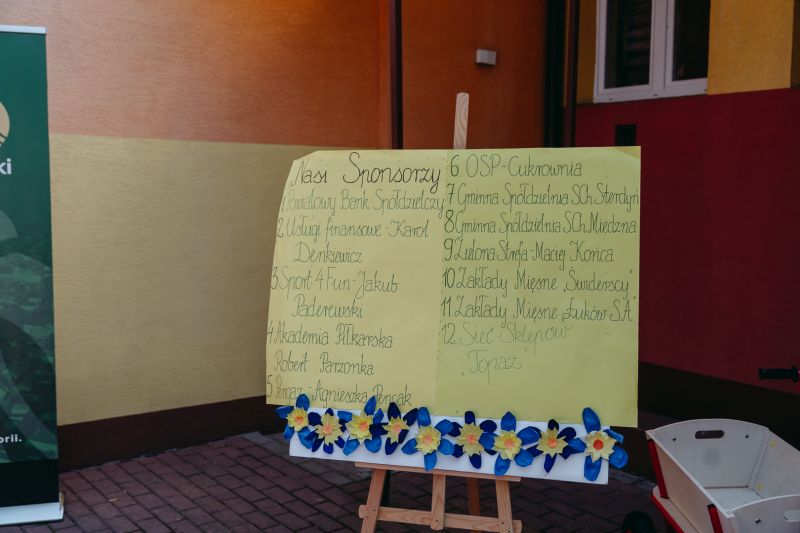 ki
orii.
Nasi Sponsorzy
1 Powiatowy Bank Spółdzielczy
2. Usługi finansowe - Karol
Denkiewicz
3 Sport 4 Fun - Jakub
Paderewski
4 Akademia Piłkarska
Robert Parzonka
5 Pengaz - Agnieszka Pencak
6 OSP - Cukrownia
7 Gminna Spółdzielnia SCh Sterdyń
8 Gminna Spółdzielnia SCh Miedzna
9 Zielona Strefa - Maciej Końca
10 Zakłady Mięsne „Świderscy"
11 Zakłady Mięsne „Łuków S.A."
12 Sieć Sklepów
„Topaz"